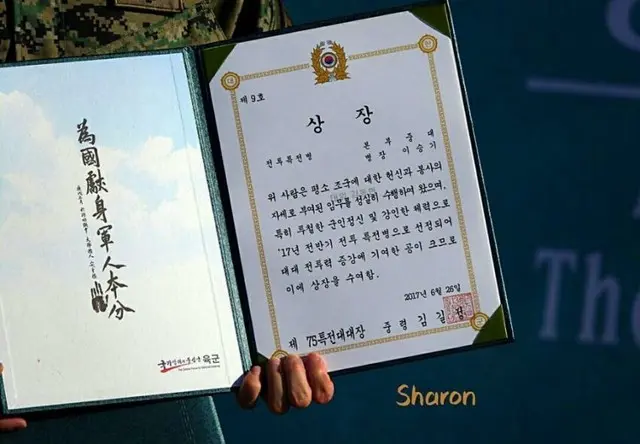 為國獻身軍人本分
육군
제 9호
상장
전투특전병
본부중대
병장 이승기
위 사람은 평소 조국에 대한 헌신과 봉사의
자세로 부여된 임무를 성실히 수행하여 왔으며,
특히 투철한 군인정신 및 강인한 체력으로
'17년 전반기 전투 특전병으로 선정되어
대대 전투력 증강에 기여한 공이 크므로
이에 상장을 수여함.
2017년 6월 26일
제 75특전대대장 중령 김길
Sharon
The